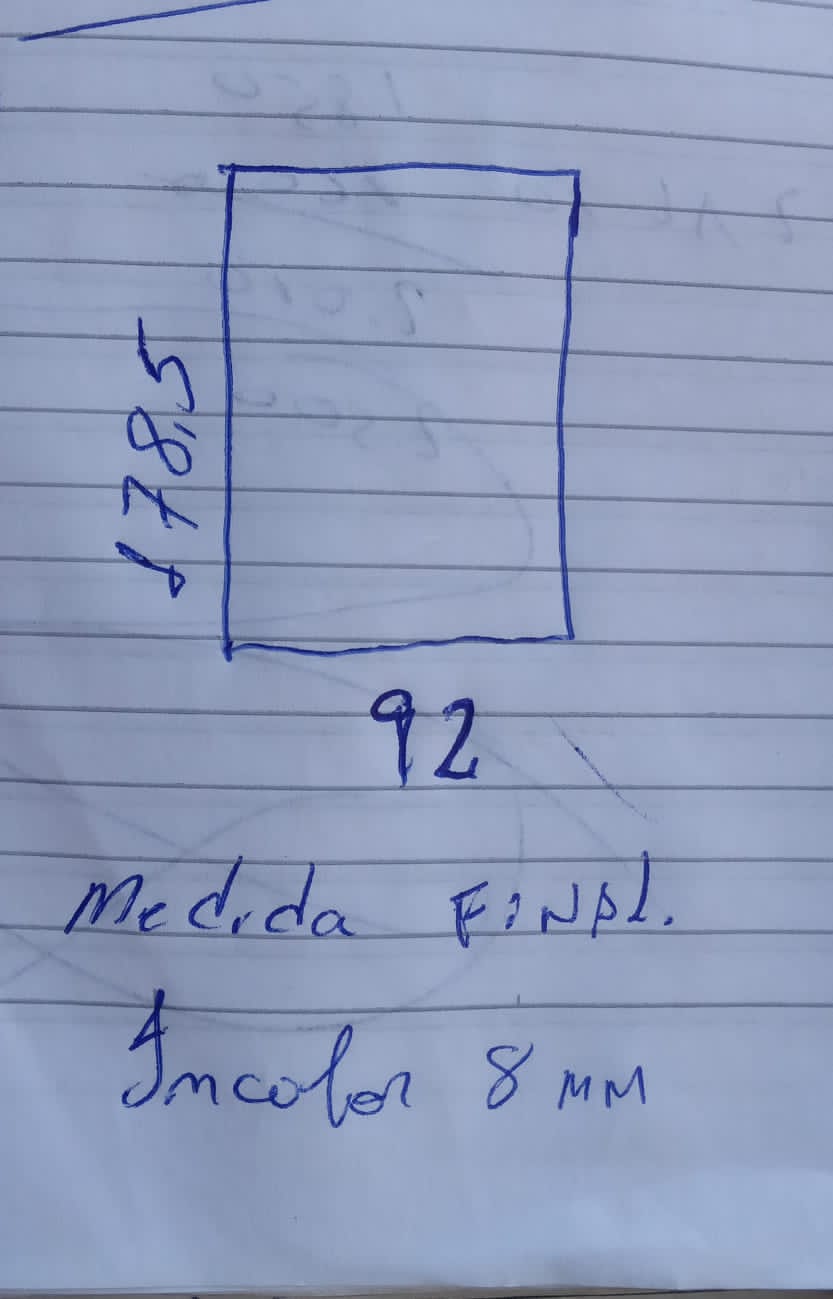 178,5
92
Medida FINAL.
Incolor 8 MM